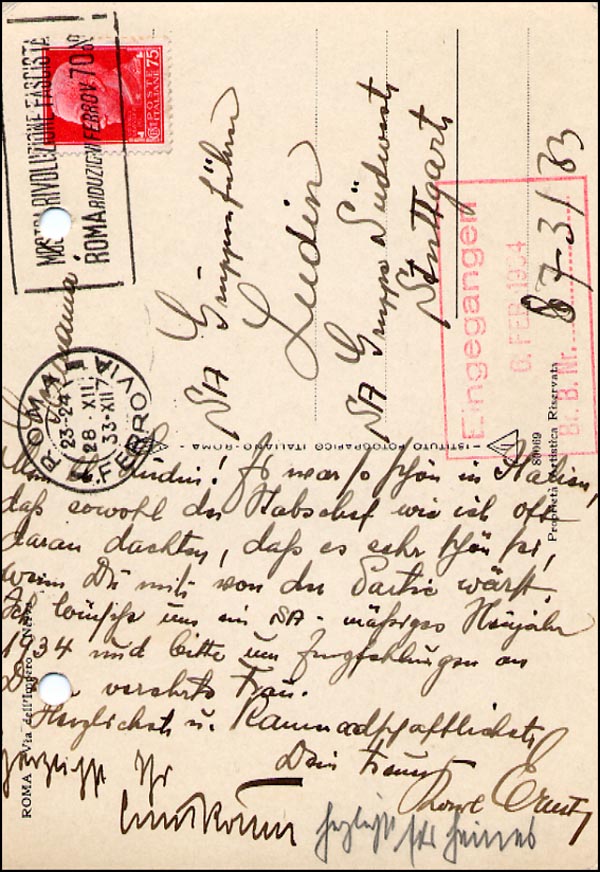 MOSTRA RIVOLUZIONE FASCISTA
ROMA RIDUZIONI FERROV. 70%
POSTE
ITALIANE 75
SA Gruppenführer
Ludin
SA Gruppe Südwest
Stuttgart
Germania
ROMA
23-24
28 XII
33-XII
FERROVIA
Eingegangen
6. FEB. 1934
Br. B. Nr.
ISTITUTO FOTOGRAFICO ITALIANO - ROMA
Proprietà Artistica Riservata
ROMA - Via dell'Impero
Mein lb. Ludin! Es war so schön in Italien,
daß sowohl der Stabschef wie ich oft
daran dachten, daß es sehr schön sei,
wenn Du mit von der Partie wärst.
Ich wünsche uns ein SA-mässiges Neujahr
1934 und bitte um Empfehlungen an
verehrte Frau.
Herzlichst u. Kameradschaftlichst
Dein Freund
Karl Ernst
Herzlichst Ihr
Ernst Röhm
herzlichst Ihr Heines